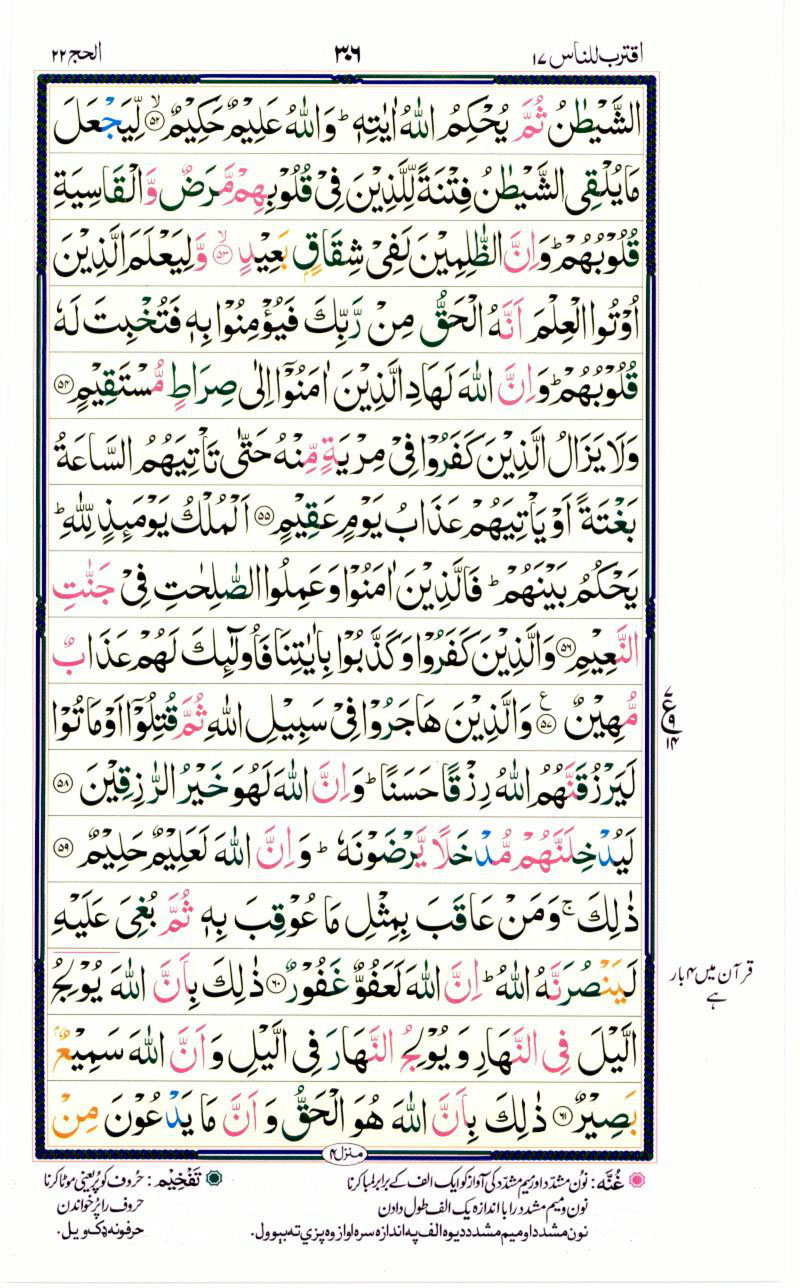 اقترب للناس ۱۷
۳۰۶
الحج ۲۲
الشَّيْطٰنُ ثُمَّ يُحْكِمُ اللّٰهُ اٰيٰتِهٖ ؕ وَاللّٰهُ عَلِيْمٌ حَكِيْمٌ ۙ﴿۵۲﴾ لِّيَجْعَلَ
مَا يُلْقِى الشَّيْطٰنُ فِتْنَةً لِّلَّذِيْنَ فِىْ قُلُوْبِهِمْ مَّرَضٌ وَّالْقَاسِيَةِ
قُلُوْبُهُمْ ؕ وَاِنَّ الظّٰلِمِيْنَ لَفِىْ شِقَاقٍ ۭ بَعِيْدٍ ۙ﴿۵۳﴾ وَّلِيَعْلَمَ الَّذِيْنَ
اُوْتُوا الْعِلْمَ اَنَّهُ الْحَقُّ مِنْ رَّبِّكَ فَيُؤْمِنُوْا بِهٖ فَتُخْبِتَ لَهٗ
قُلُوْبُهُمْ ؕ وَاِنَّ اللّٰهَ لَهَادِ الَّذِيْنَ اٰمَنُوْۤا اِلٰى صِرَاطٍ مُّسْتَقِيْمٍ ﴿۵۴﴾
وَلَا يَزَالُ الَّذِيْنَ كَفَرُوْا فِىْ مِرْيَةٍ مِّنْهُ حَتّٰى تَاْتِيَهُمُ السَّاعَةُ
بَغْتَةً اَوْ يَاْتِيَهُمْ عَذَابُ يَوْمٍ عَقِيْمٍ ﴿۵۵﴾ اَلْمُلْكُ يَوْمَئِذٍ لِّلّٰهِ ؕ
يَحْكُمُ بَيْنَهُمْ ؕ فَالَّذِيْنَ اٰمَنُوْا وَعَمِلُوا الصّٰلِحٰتِ فِىْ جَنّٰتِ
النَّعِيْمِ ﴿۵۶﴾ وَالَّذِيْنَ كَفَرُوْا وَكَذَّبُوْا بِاٰيٰتِنَا فَاُولٰٓئِكَ لَهُمْ عَذَابٌ
مُّهِيْنٌ ﴿۵۷﴾ ع وَالَّذِيْنَ هَاجَرُوْا فِىْ سَبِيْلِ اللّٰهِ ثُمَّ قُتِلُوْۤا اَوْ مَاتُوْا
۷
ع ۹
۱۴
لَيَرْزُقَنَّهُمُ اللّٰهُ رِزْقًا حَسَنًا ؕ وَاِنَّ اللّٰهَ لَهُوَ خَيْرُ الرّٰزِقِيْنَ ﴿۵۸﴾
لَيُدْخِلَنَّهُمْ مُّدْخَلًا يَّرْضَوْنَهٗ ؕ وَاِنَّ اللّٰهَ لَعَلِيْمٌ حَلِيْمٌ ﴿۵۹﴾
ذٰلِكَ ۚ وَمَنْ عَاقَبَ بِمِثْلِ مَا عُوْقِبَ بِهٖ ثُمَّ بُغِىَ عَلَيْهِ
لَيَنْصُرَنَّهُ اللّٰهُ ؕ اِنَّ اللّٰهَ لَعَفُوٌّ غَفُوْرٌ ﴿۶۰﴾ ذٰلِكَ بِاَنَّ اللّٰهَ يُوْلِجُ
قرآن میں ۴ بار
ہے
الَّيْلَ فِى النَّهَارِ وَيُوْلِجُ النَّهَارَ فِى الَّيْلِ وَاَنَّ اللّٰهَ سَمِيْعٌۢ
بَصِيْرٌ ﴿۶۱﴾ ذٰلِكَ بِاَنَّ اللّٰهَ هُوَ الْحَقُّ وَاَنَّ مَا يَدْعُوْنَ مِنْ
منزل ۴
غُنَّه: نُون مشدّد اور مِیم مشدّد کی آواز کو ایک الف کے برابر لمبا کرنا
نون و میم مشدد را با اندازه یک الف طول دادن
نون مشدد او میم مشدد د یوه الف په اندازه سره اواز وه پزې ته بېوول.
تَفْخِيْم: حروف کو پُر یعنی موٹا کرنا
حروف را پُر خواندن
حرفونه ډک ویل.